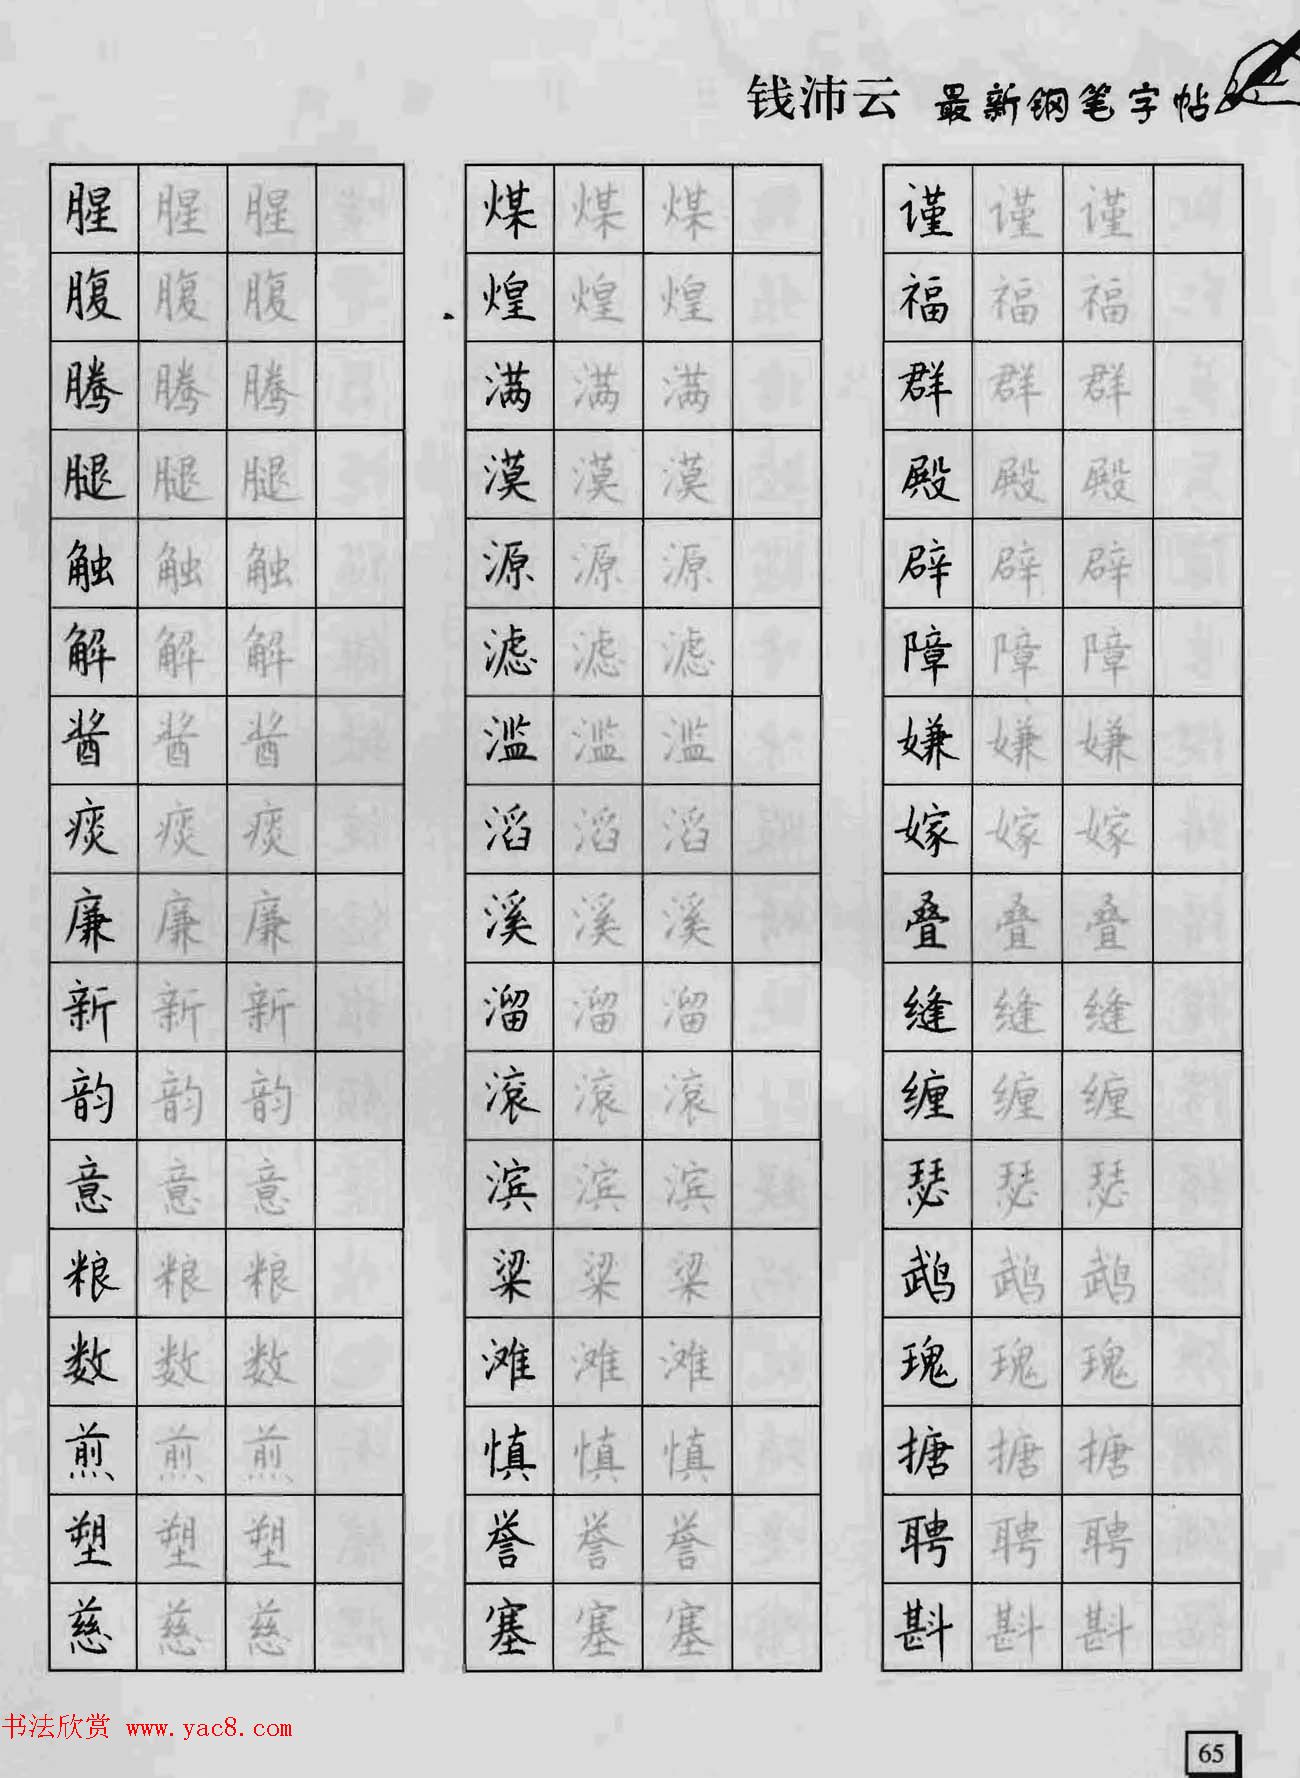 钱沛云 最新钢笔字帖
腥 腥 腥 煤 煤 煤 谨 谨 谨
腹 腹 腹 煌 煌 煌 福 福 福
腾 腾 腾 满 满 满 群 群 群
腿 腿 腿 漠 漠 漠 殿 殿 殿
触 触 触 源 源 源 辟 辟 辟
解 解 解 滤 滤 滤 障 障 障
酱 酱 酱 滥 滥 滥 嫌 嫌 嫌
痰 痰 痰 滔 滔 滔 嫁 嫁 嫁
廉 廉 廉 溪 溪 溪 叠 叠 叠
新 新 新 溜 溜 溜 缝 缝 缝
韵 韵 韵 滚 滚 滚 缠 缠 缠
意 意 意 滨 滨 滨 瑟 瑟 瑟
粮 粮 粮 粱 粱 粱 鹉 鹉 鹉
数 数 数 滩 滩 滩 瑰 瑰 瑰
煎 煎 煎 慎 慎 慎 搪 搪 搪
塑 塑 塑 誉 誉 誉 聘 聘 聘
慈 慈 慈 塞 塞 塞 斟 斟 斟
书法欣赏 www.yac8.com
65